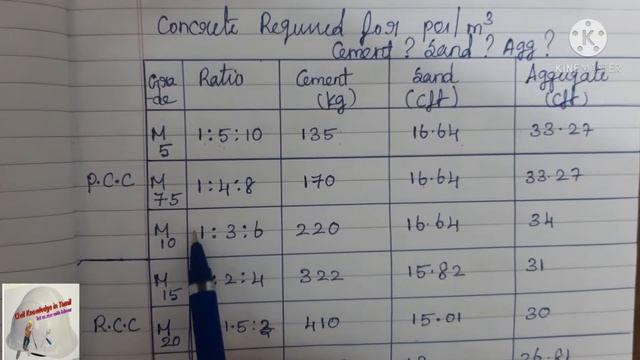 Concrete Required for per/m³
Cement ? Sand ? Agg ?
KINEMASTER
Gra de Ratio Cement (kg) Sand (cft) Aggregate (cft)
M5 1:5:10 135 16.64 33.27
P.C.C M7.5 1:4:8 170 16.64 33.27
M10 1:3:6 220 16.64 34
M15 :2:4 322 15.82 31
R.C.C M20 1.5:3 410 15.01 30
26.81
Civil Knowledge in Tamil